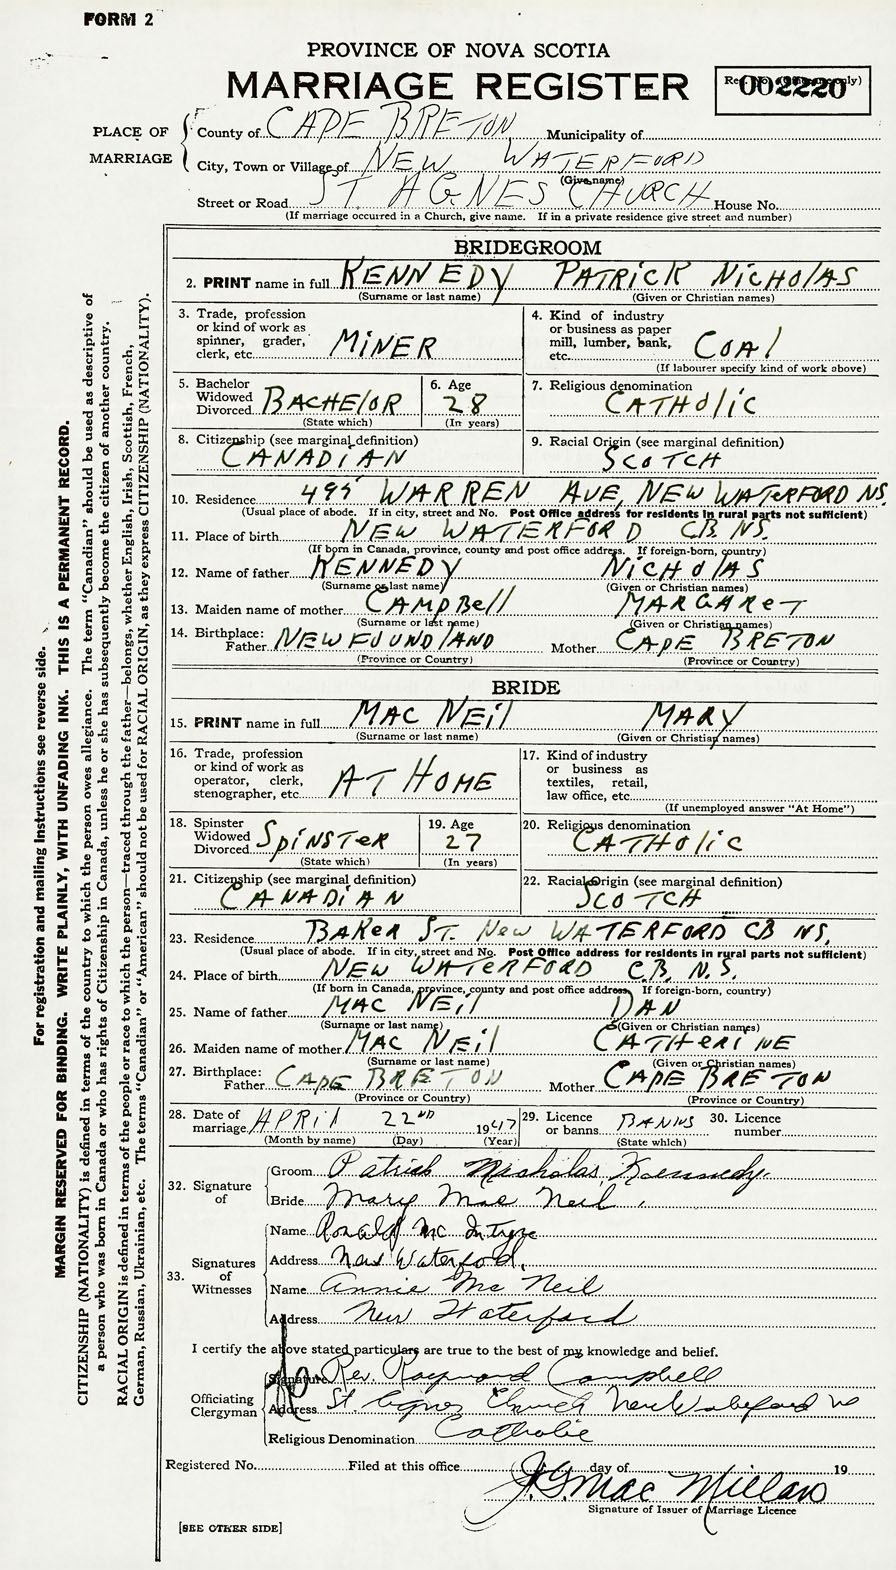 FORM 2
PROVINCE OF NOVA SCOTIA
MARRIAGE REGISTER
Reg. No. (Office use only)
002220
PLACE OF MARRIAGE
County of CAPE BRETON Municipality of
City, Town or Village of NEW WATERFORD
(Give name)
Street or Road ST. AGNES CHURCH House No.
(If marriage occurred in a Church, give name. If in a private residence give street and number)
BRIDEGROOM
2. PRINT name in full KENNEDY PATRICK NICHOLAS
(Surname or last name) (Given or Christian names)
3. Trade, profession or kind of work as spinner, grader, clerk, etc. MINER
4. Kind of industry or business as paper mill, lumber, bank, etc. COAL
(If labourer specify kind of work above)
5. Bachelor Widowed Divorced BACHELOR
(State which)
6. Age 28
(In years)
7. Religious denomination CATHOLIC
8. Citizenship (see marginal definition) CANADIAN
9. Racial Origin (see marginal definition) SCOTCH
10. Residence 495 WARREN AVE, NEW WATERFORD NS.
(Usual place of abode. If in city, street and No. Post Office address for residents in rural parts not sufficient)
11. Place of birth NEW WATERFORD C.B. NS.
(If born in Canada, province, county and post office address. If foreign-born, country)
12. Name of father KENNEDY NICHOLAS
(Surname or last name) (Given or Christian names)
13. Maiden name of mother CAMPBELL MARGARET
(Surname or last name) (Given or Christian names)
14. Birthplace: Father NEWFOUNDLAND Mother CAPE BRETON
(Province or Country) (Province or Country)
BRIDE
15. PRINT name in full MAC NEIL MARY
(Surname or last name) (Given or Christian names)
16. Trade, profession or kind of work as operator, clerk, stenographer, etc. AT HOME
17. Kind of industry or business as textiles, retail, law office, etc.
(If unemployed answer "At Home")
18. Spinster Widowed Divorced SPINSTER
(State which)
19. Age 27
(In years)
20. Religious denomination CATHOLIC
21. Citizenship (see marginal definition) CANADIAN
22. Racial Origin (see marginal definition) SCOTCH
23. Residence BAKER ST. NEW WATERFORD CB NS.
(Usual place of abode. If in city, street and No. Post Office address for residents in rural parts not sufficient)
24. Place of birth NEW WATERFORD C.B. N.S.
(If born in Canada, province, county and post office address. If foreign-born, country)
25. Name of father MAC NEIL DAN
(Surname or last name) (Given or Christian names)
26. Maiden name of mother MAC NEIL CATHERINE
(Surname or last name) (Given or Christian names)
27. Birthplace: Father CAPE BRETON Mother CAPE BRETON
(Province or Country) (Province or Country)
28. Date of marriage APRIL 22ND 1947
(Month by name) (Day) (Year)
29. Licence or banns BANNS
(State which)
30. Licence number
32. Signature of
Groom Patrick Nicholas Kennedy.
Bride Mary Mac Neil.
33. Signatures of Witnesses
Name Ronald Mc Intyre
Address New Waterford.
Name Annie Mc Neil
Address New Waterford
I certify the above stated particulars are true to the best of my knowledge and belief.
Officiating Clergyman
Signature Rev. Raymond Campbell
Address St. Agnes Church New Waterford NS
Religious Denomination Catholic
Registered No. Filed at this office day of 19
J.G. Mac Millan
Signature of Issuer of Marriage Licence
[SEE OTHER SIDE]
For registration and mailing instructions see reverse side.
MARGIN RESERVED FOR BINDING. WRITE PLAINLY, WITH UNFADING INK. THIS IS A PERMANENT RECORD.
CITIZENSHIP (NATIONALITY) is defined in terms of the country to which the person owes allegiance. The term "Canadian" should be used as descriptive of
a person who was born in Canada or who has rights of Citizenship in Canada, unless he or she has subsequently become the citizen of another country.
RACIAL ORIGIN is defined in terms of the people or race to which the person—traced through the father—belongs, whether English, Irish, Scottish, French,
German, Russian, Ukrainian, etc. The terms "Canadian" or "American" should not be used for RACIAL ORIGIN, as they express CITIZENSHIP (NATIONALITY).